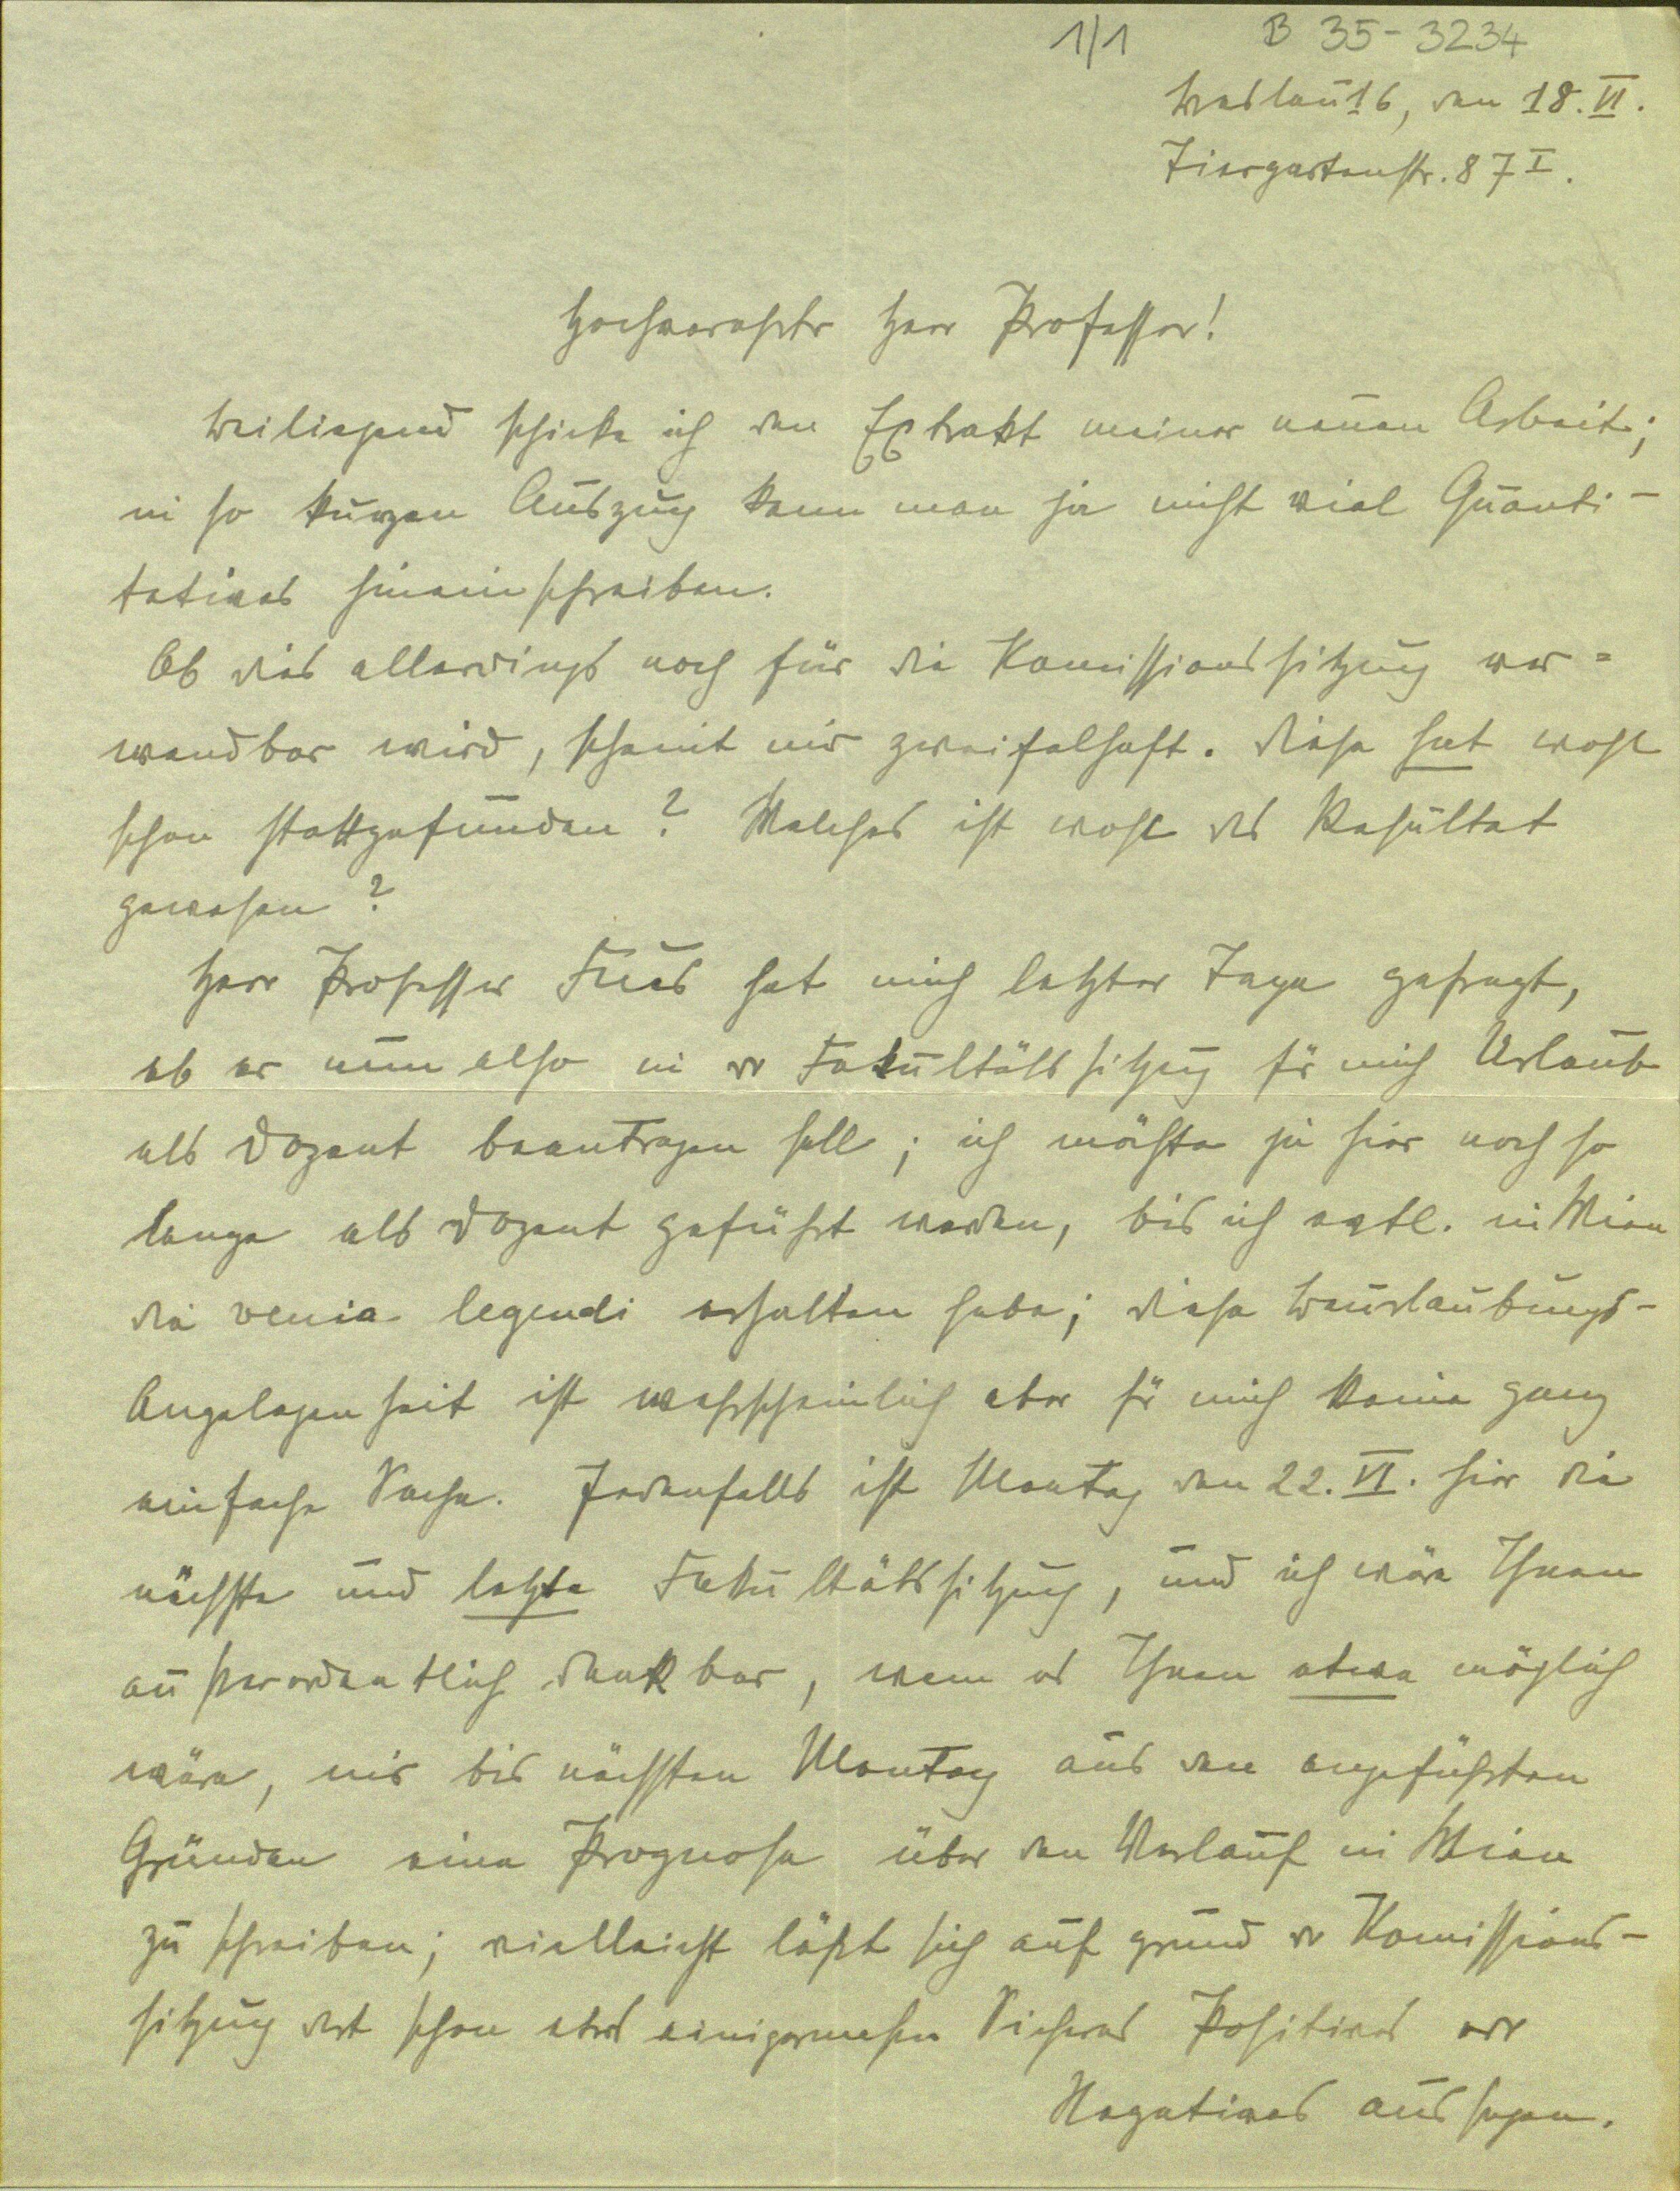 1/1 B 35-3234
Breslau 16, den 18. VI.
Tiergartenstr. 87 I.
Hochverehrter Herr Professor!
Beiliegend schicke ich den Extrakt meiner neuen Arbeit;
in so kurzen Auszug kann man ja nicht viel Quanti-
tatives hineinschreiben.
Ob dies allerdings noch für die Komissionssitzung ver=
wendbar wird, scheint mir zweifelhaft. Diese hat wohl
schon stattgefunden? Welches ist wohl das Resultat
gewesen?
Herr Professor Fues hat mich letzter Tage gefragt,
ob er nun also in der Fakultätssitzung für mich Urlaub
als Dozent beantragen soll; ich möchte ja hier noch so
lange als Dozent geführt werden, bis ich evtl. in Wien
die venia legendi erhalten habe; diese Beurlaubungs-
Angelegenheit ist wahrscheinlich aber für mich keine ganz
einfache Sache. Jedenfalls ist Montag den 22. VI. hier die
nächste und letzte Fakultätssitzung, und ich wäre Ihnen
außerordentlich dankbar, wenn es Ihnen etwa möglich
wäre, mir bis nächsten Montag aus den angeführten
Gründen eine Prognose über den Verlauf in Wien
zu schreiben; vielleicht läßt sich auf grund der Komissions-
sitzung dort schon etwas einigermaßen Sicheres Positives oder
Negatives aussagen.